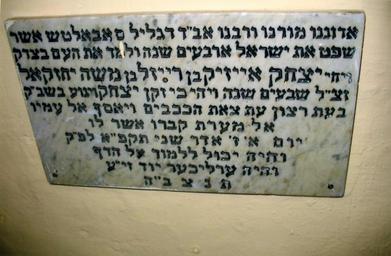 אדוננו מורנו ורבנו אב״ד דגליל סאבאלטש אשר
שפט את ישראל ארבעים שנה ולמד את העם בצדק
ויהי יצחק אייזיק בן רייזל בן משה יחזקאל
זצ״ל שבעים שנה ויהי כי זקן יצחק ויגוע בשב״ק
בעת רצון עת צאת הכוכבים ויאסף אל עמיו
אל מערת קברו אשר לו
יום א׳ ז׳ אדר שני תקפ״א לפ״ק
והיה יכול ללמוד אל הדף
והיה ערליכער יוד זי״ע
ת נ צ ב ״ה